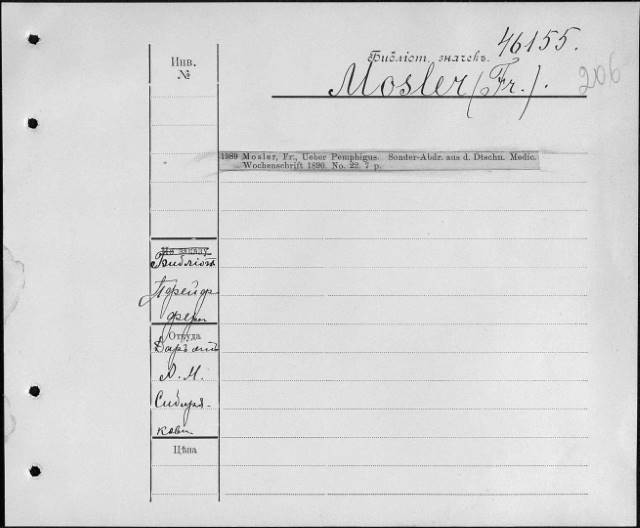 46155.
Инв.
№
Библіот. значекъ.
206
Mosler (Fr.).
1989 Mosler, Fr., Ueber Pemphigus. Sonder-Abdr. aus d. Dtschn. Medic.
Wochenschrift 1890. No. 22. 7 p.
По заказу
Библіот.
Пфейф
фера
Откуда
Даръ отъ
А. М.
Сибиря-
кова
Цѣна